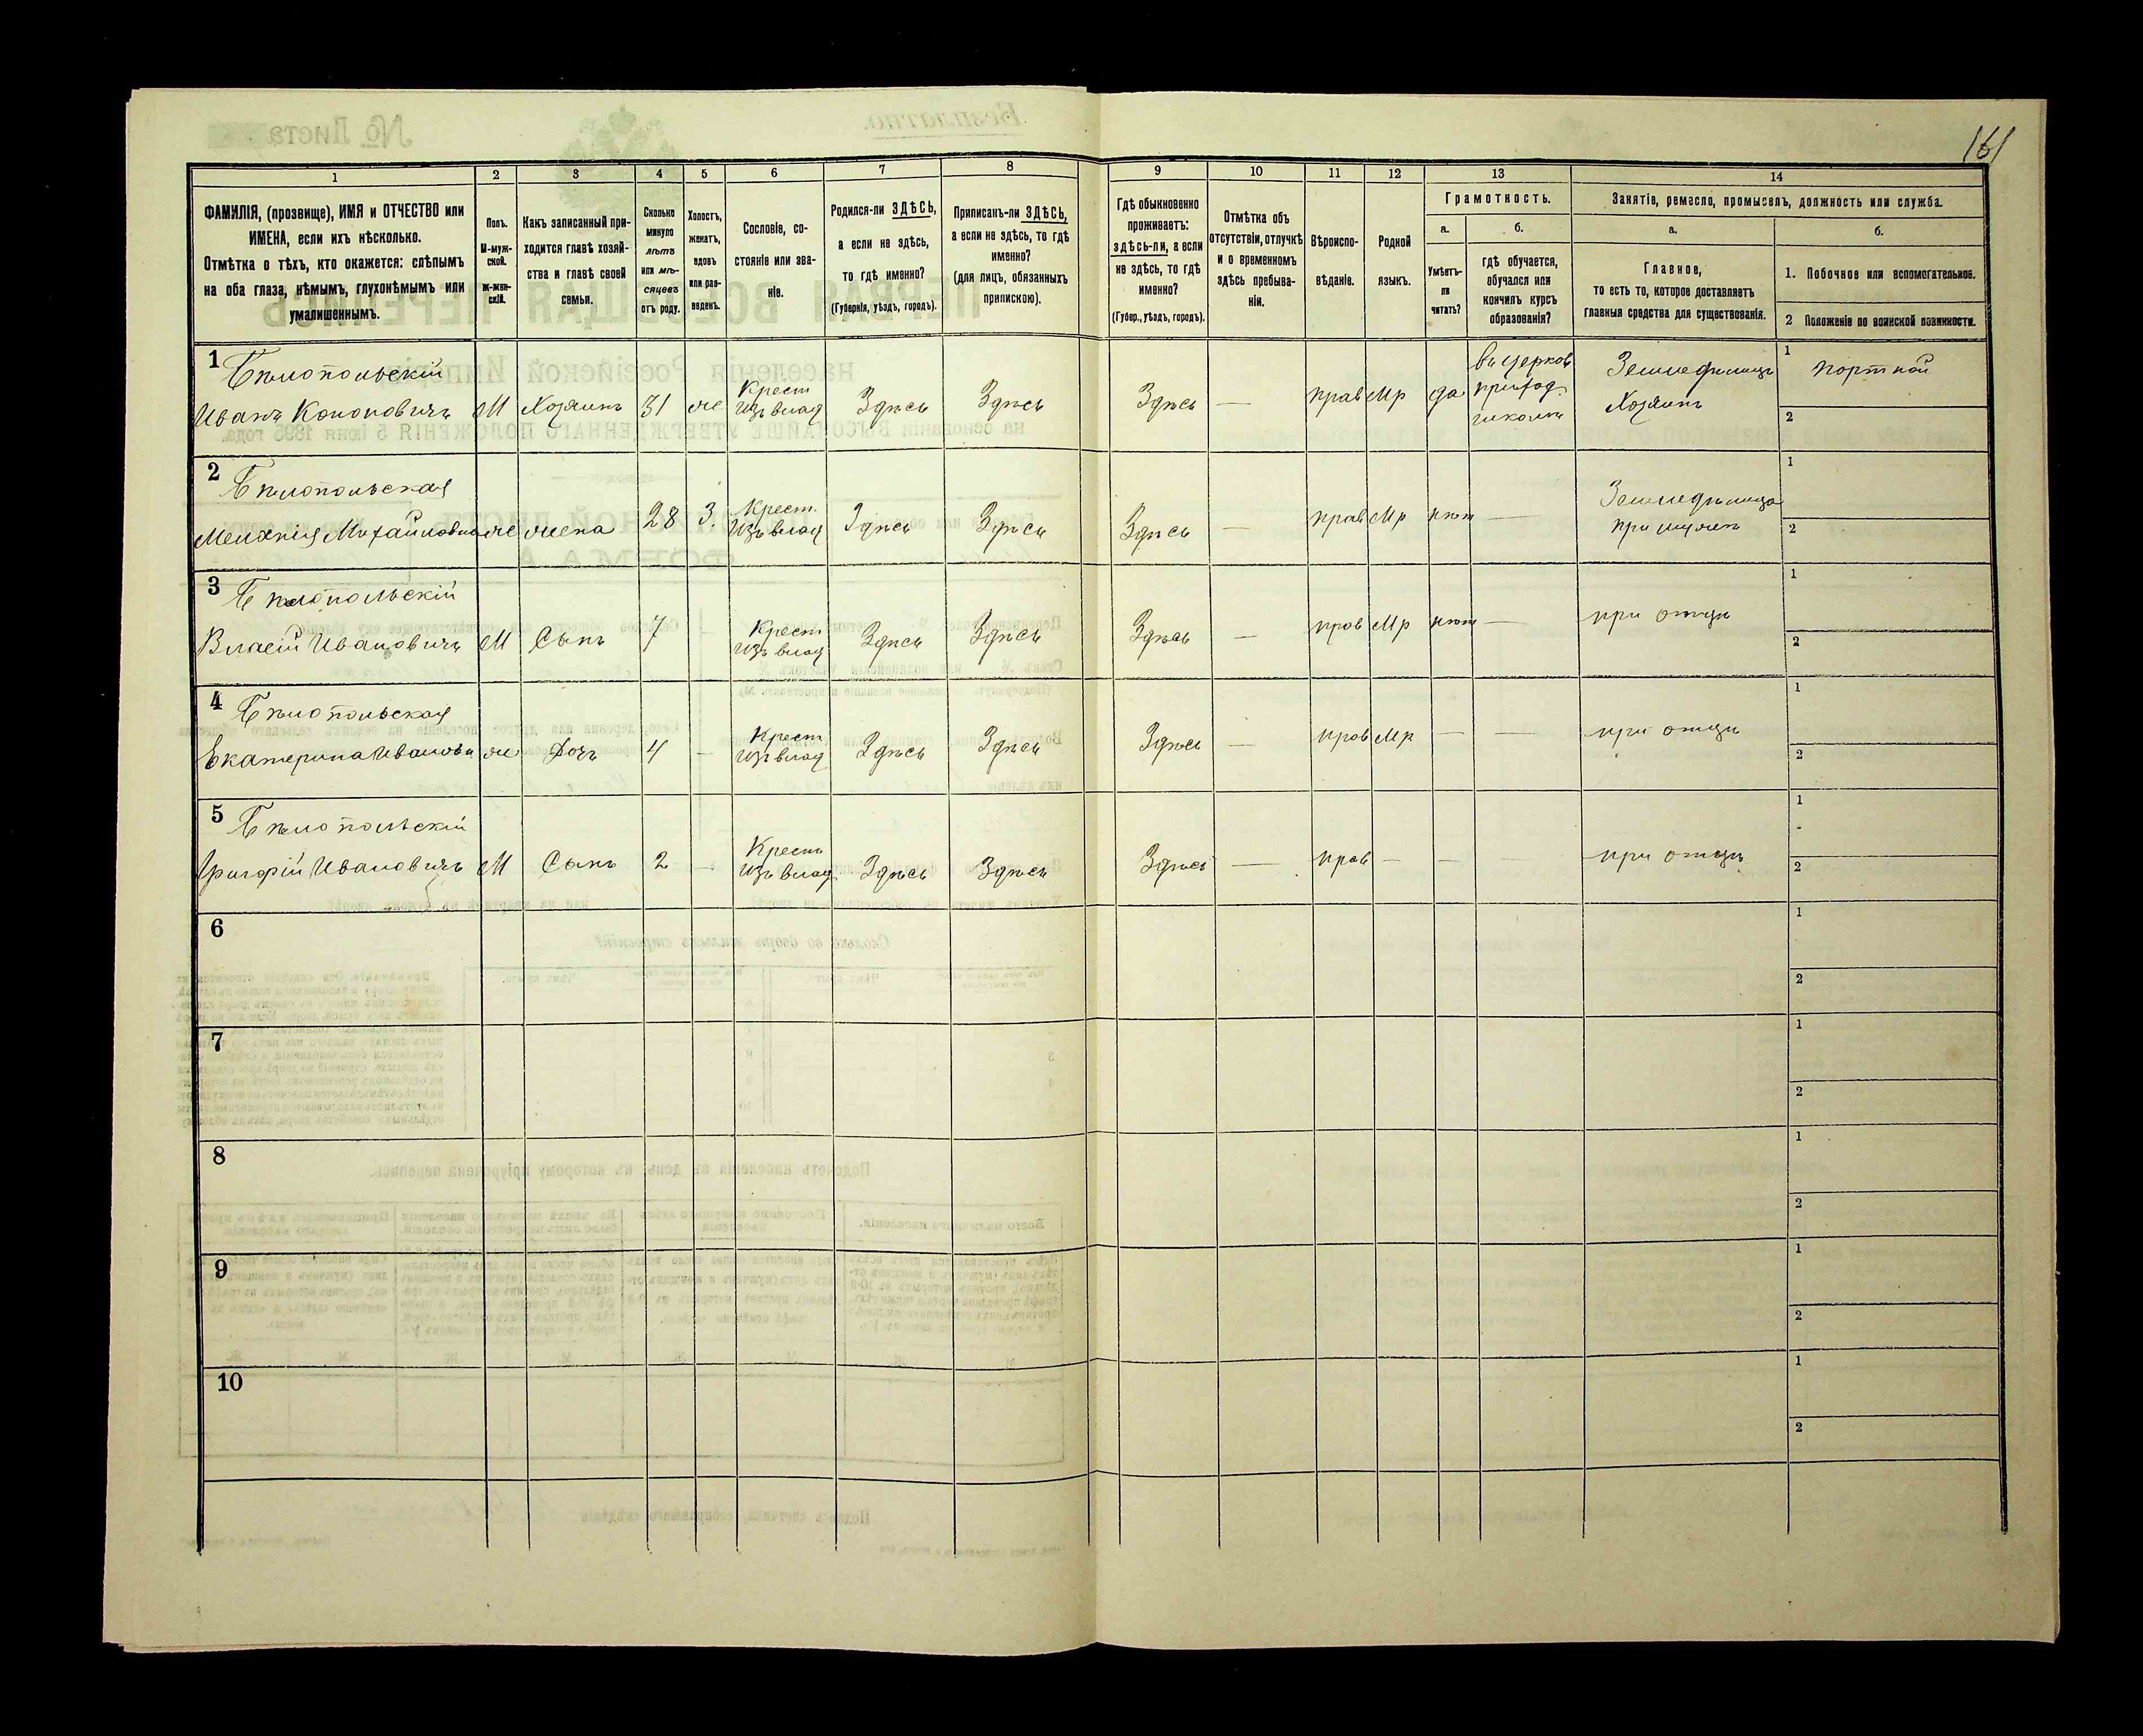 161
1
2
3
4
5
6
7
8
9
10
11
12
13
14
ФАМИЛІЯ, (прозвище), ИМЯ и ОТЧЕСТВО или
ИМЕНА, если ихъ нѣсколько.
Отмѣтка о тѣхъ, кто окажется: слѣпымъ
на оба глаза, нѣмымъ, глухонѣмымъ или
умалишеннымъ.
Полъ.
М-муж-
ской.
Ж-жен-
скій.
Какъ записанный при-
ходится главѣ хозяй-
ства и главѣ своей
семьи.
Сколько
минуло
лѣтъ
или мѣ-
сяцевъ
отъ роду.
Холостъ,
женатъ,
вдовъ
или раз-
веденъ.
Сословіе, со-
стояніе или зва-
ніе.
Родился-ли ЗДѢСЬ,
а если не здѣсь,
то гдѣ именно?
(Губернія, уѣздъ, городъ).
Приписанъ-ли ЗДѢСЬ,
а если не здѣсь, то гдѣ
именно?
(для лицъ, обязанныхъ
припискою).
Гдѣ обыкновенно
проживаетъ:
здѣсь-ли, а если
не здѣсь, то гдѣ
именно?
(Губер., уѣздъ, городъ).
Отмѣтка объ
отсутствіи, отлучкѣ
и о временномъ
здѣсь пребыва-
ніи.
Вѣроиспо-
вѣданіе.
Родной
языкъ.
Грамотность.
а.
Умѣетъ-
ли
читать?
б.
гдѣ обучается,
обучался или
кончилъ курсъ
образованія?
Занятіе, ремесло, промыселъ, должность или служба.
а.
Главное,
то есть то, которое доставляетъ
главныя средства для существованія.
б.
1. Побочное или вспомогательное.
2 Положеніе по воинской повинности.
1
Бѣлопольскій
Иванъ Кононовичъ М Хозяинъ 31 ж Крест изъ влад Здѣсь Здѣсь Здѣсь — прав Мр да въ церков приход школѣ Земледѣлецъ Хозяинъ 1 портной 2
2
Бѣлопольская
Меланія Михайловна ж жена 28 З. Крест. изъ влад Здѣсь Здѣсь Здѣсь — прав Мр нѣт — Земледѣлица при мужѣ 1 2
3
Бѣлопольскій
Власій Ивановичъ М Сынъ 7 — Крест изъ влад Здѣсь Здѣсь Здѣсь — прав Мр нѣт — при отцѣ 1 2
4
Бѣлопольская
Екатерина Иванова ж Дочь 4 — Крест изъ влад Здѣсь Здѣсь Здѣсь — прав Мр — — при отцѣ 1 2
5
Бѣлопольскій
Григорій Ивановичъ М Сынъ 2 — Крест изъ влад Здѣсь Здѣсь Здѣсь — прав — — — при отцѣ 1 2
6 1 2
7 1 2
8 1 2
9 1 2
10 1 2